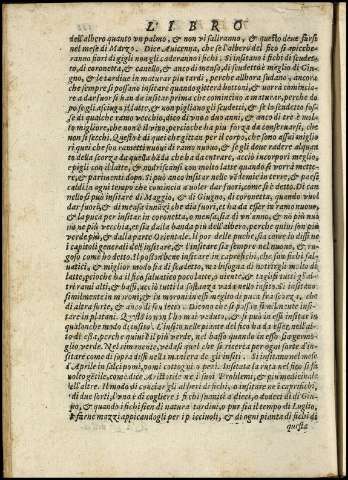 LIBRO
dell'albero quanto un palmo, & non vi saliranno, & questo deue farsi
nel mese di Marzo. Dice Auicenna, che se l'albero del fico si
ranno fiori di gigli non gli caderanno i fichi. Si insitano i fichi di scudet-
to, di coronetta, & canello, & anco di mensa, di scudetto è meglio di Giu-
gno, & le tardiue in maturar piu tardi, perche allhora sudano, ancora
che sempre si possano insitare quando gittera bottoni, & vorrà comincia-
re a dar fuor si han da insitar prima che comincino a maturare, perche do
po se gli asciuga il latte, & non pigliano gli scudetti, & se lo scudetto fus-
se di qualche ramo vecchio, dico di uno o due anni, & anco di tre è mol-
to migliore, che non è il viuo, percioche ha piu forza da conseruarsi, che
non si secchi. Questo è di quei che gittan per il corpo, che sono assai miglio
ri quei che son rametti nuoui di ramo nuouo, & se gli deue radere alquan
to della scorza da quella banda che ha da entrare, acciò incorpori meglio,
e pigli con il latte, & nodriscasi con molto latte quando si vorrà mette-
re, & partimenti dopo. Si può anco insitar nelle viti dentro in terre, & pas
saldi in ogni tempo che comincia a voler dar fuori, come si è detto. Di can
nello si può insitare di Maggio, & di Giugno, di coronetta, quando vuol
dar fuori, & di mensa innanzi che dia fuori, et ha da esser in ramo nuouo,
& la puca per insitar in coronetta, o mensa, sia di vn'anno, & nò più nuo
na ne più vecchia, et sia dalla banda piu dell'albero, perche quiui son più
verde pò, & dalla parte Orientale. Il por delle puche, sia come lo dissi ne
i capitoli generali dell'insitare, & l'insitare sia sempre nel nuouo, & ru-
goso come ho detto. Il possono bene insitare in caprefichi, che son fichi sal-
uatici, & miglior modo sia di scudetto, ne bisogna di nutrirgli molto di
latte, perioche ha il fico saluatico poco latte, o niente, & taglisi tutti gl'al-
tri rami alti, & bassi, acciò tutti la sostanza vada nello insito. Si insitano
similmente in moroni, & in morai in essi meglio di puca fra scorza, che
di altra sorte, & anco di scudetto. Dicono che si possono similmente insi-
tare in platani. Quello non l'ho mai veduto, & si può in essi insitare in
qualunche modo di insito. L'insito nelle piante del fico ha da esser nell'al-
to di està, perche è quiui il più verde, nel basso quando in esso sia germo-
glio verde. Nel rimanente, vedasi quel che si recita per ogni sorte d'in-
sitare come di sopra dissi nella maniera de gli insiti. Si insitano nel mese
d'Aprile in salci pomi, pomi cottogni o peri. Insitata la ruta nel fico si fà
molto gētile, come dice Aristotile ne i suoi Problemi, & più medicinale
dell'altre. Il modo di cauciar gli alberi di fichi, o insitare ne i caprefichi,
di due sorti, l'vno è di cogliere i fichi fin'alla dieci, o dodeci di di Giu
gno, & quando i fichi sien di natura tardiui, o pur sia il tempo di Luglio,
& farne mazzi appiccandogli per i piccinoli, & in ogni pianta di fichi di
questa